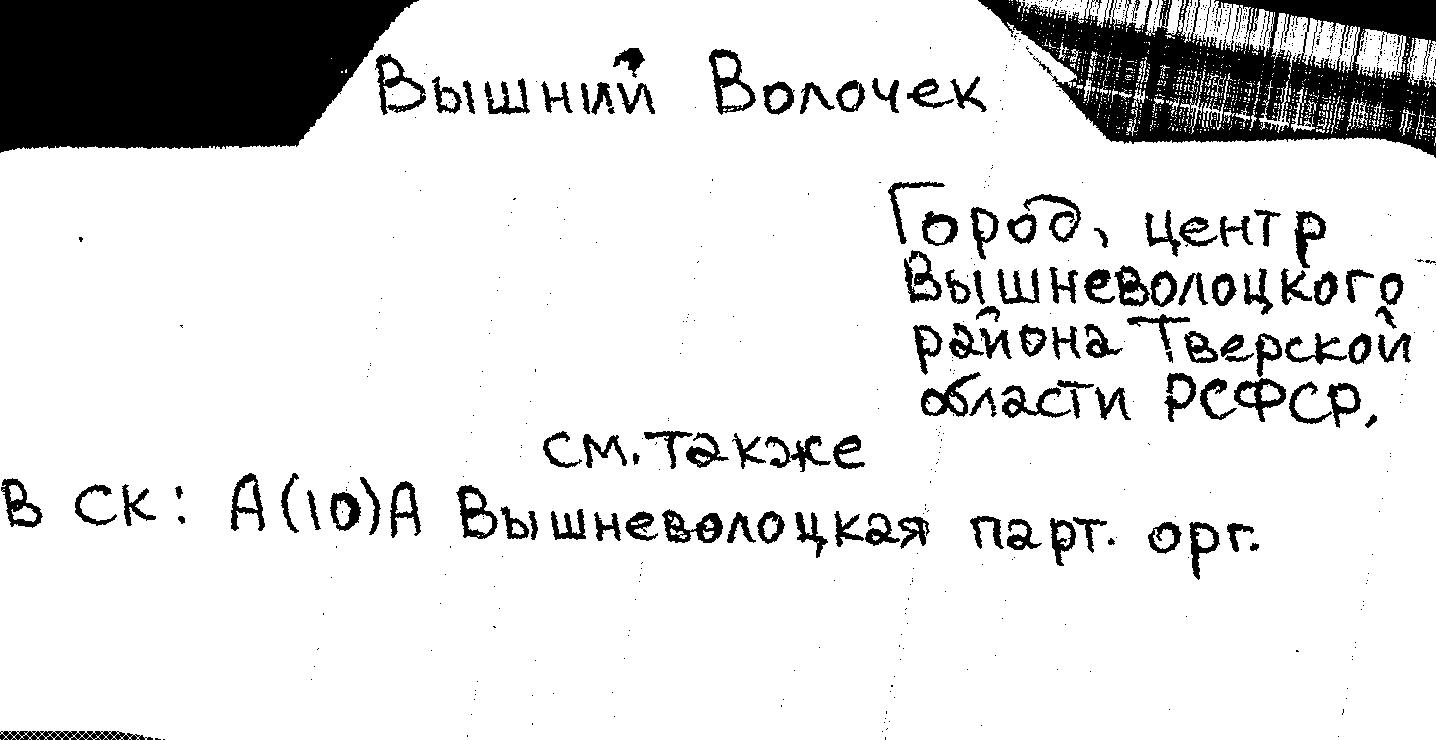 Вышний Волочек
Город, центр
Вышневолоцкого
района Тверской
области РСФСР,
см. также
в СК: А(10)А Вышневолоцкая парт. орг.